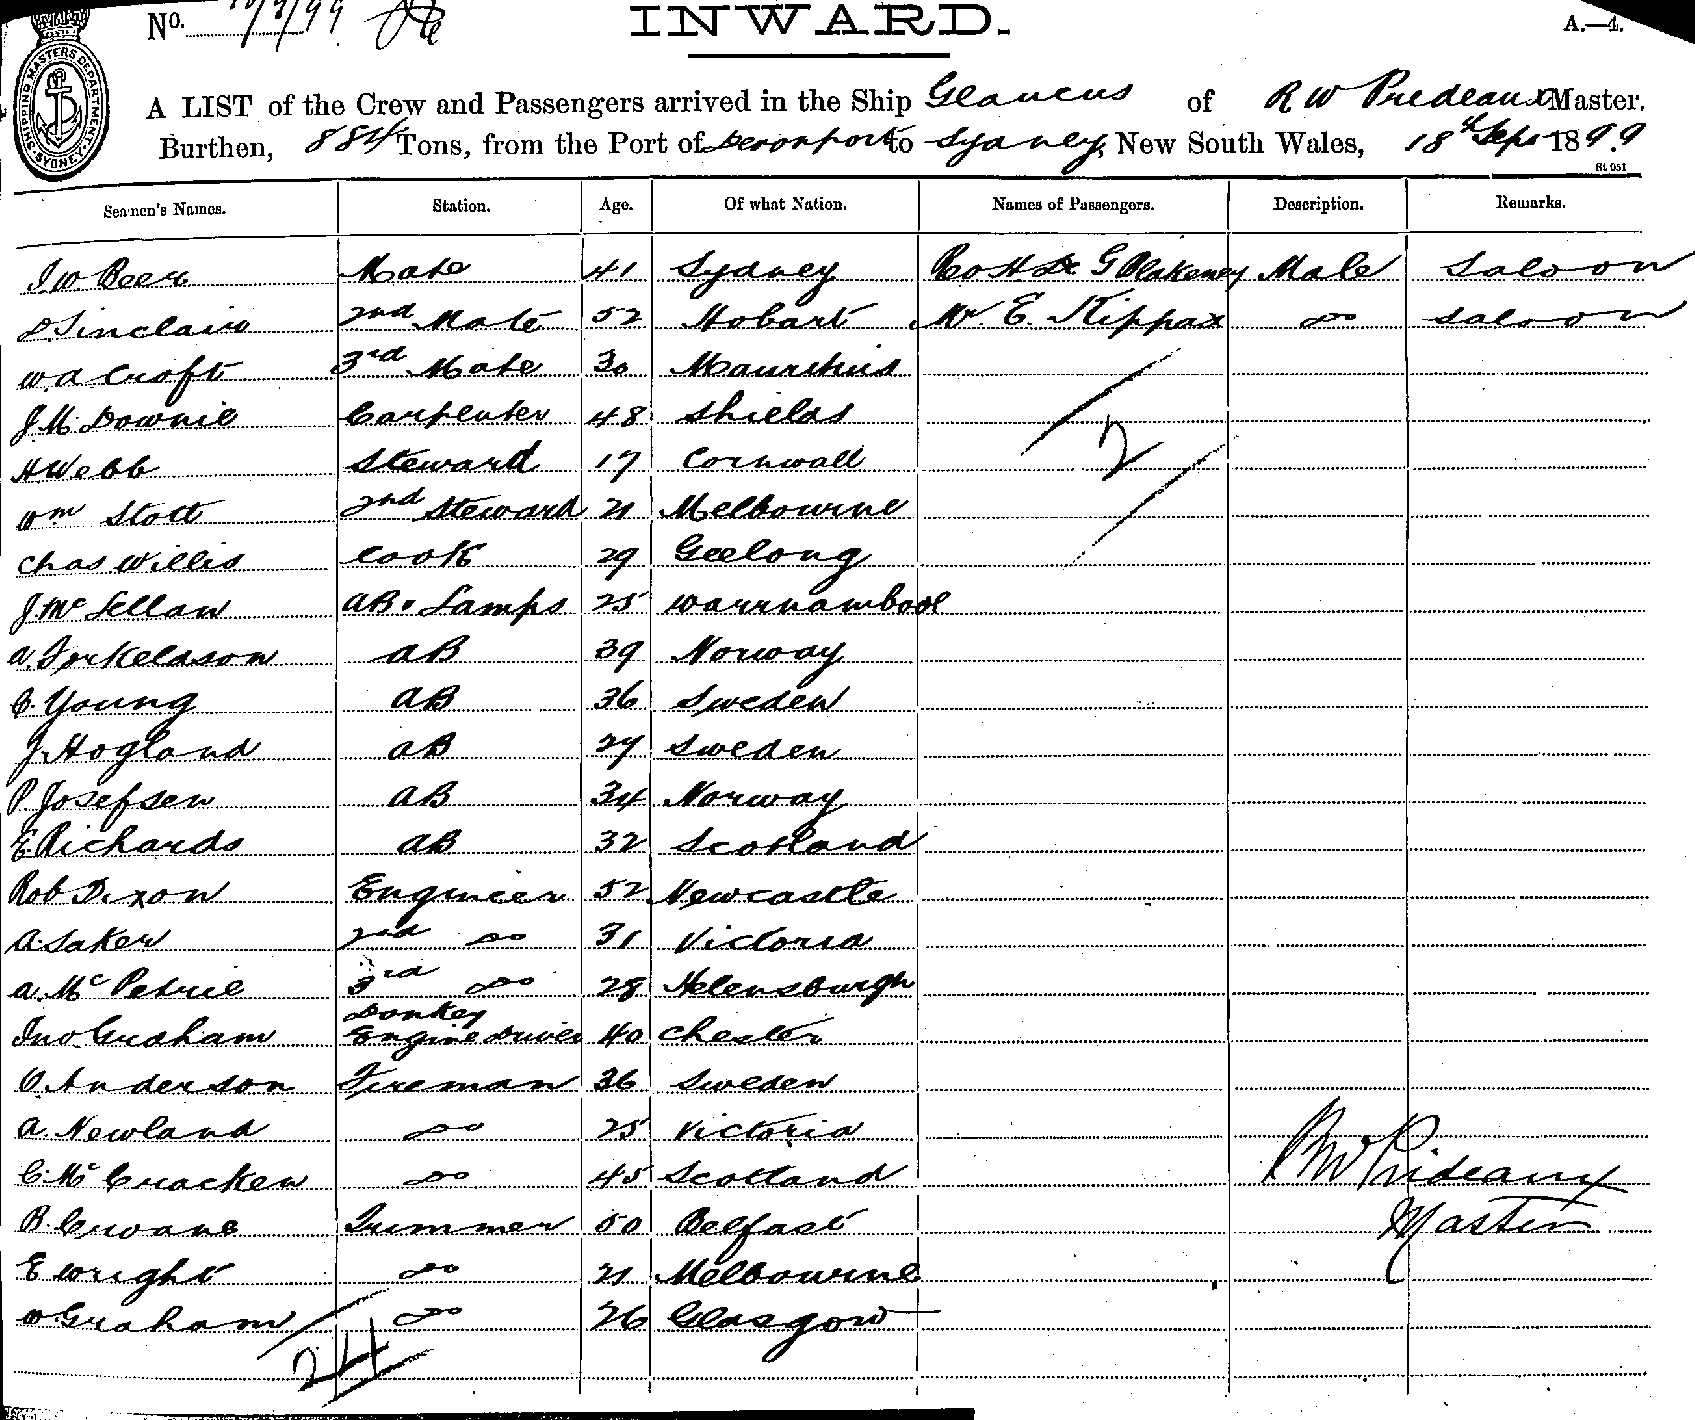 No. /99
INWARD.
A.—4.
SHIPPING MASTERS DEPARTMENT SYDNEY
A LIST of the Crew and Passengers arrived in the Ship Glaucus of R W Prideaux Master,
Burthen, 884 Tons, from the Port of Devonport to Sydney, New South Wales, 18th Sept 1899
Seamen's Names. Station. Age. Of what Nation. Names of Passengers. Description. Remarks.
J W Beer Mate 41 Sydney G Blakeney Male Saloon
D Sinclair 2nd Mate 52 Hobart Mr. E. Kippax do Saloon
W A Croft 3rd Mate 30 Mauritius
J M Downie Carpenter 48 Shields
2
H Webb Steward 17 Cornwall
Wm Stott 2nd Steward 21 Melbourne
Chas Willis Cook 29 Geelong
J McLellan AB. Lamps 25 Warrnambool
A. Torkelason AB 39 Norway
C. Young AB 36 Sweden
J. Hogland AB 27 Sweden
P Josefsen AB 34 Norway
E. Richards AB 32 Scotland
Rob Dixon Engineer 52 Newcastle
A. Saker 2nd do 31 Victoria
A. McPetrie 3rd do 28 Helensburgh
Jno Graham Donkey Engine Driver 40 Chester
O. Anderson Fireman 36 Sweden
A. Newland do 25 Victoria
C. McCracken do 45 Scotland
R W Prideaux
B. Cuoane Trimmer 50 Belfast
Master
E Wright do 21 Melbourne
W Graham do 26 Glasgow
24